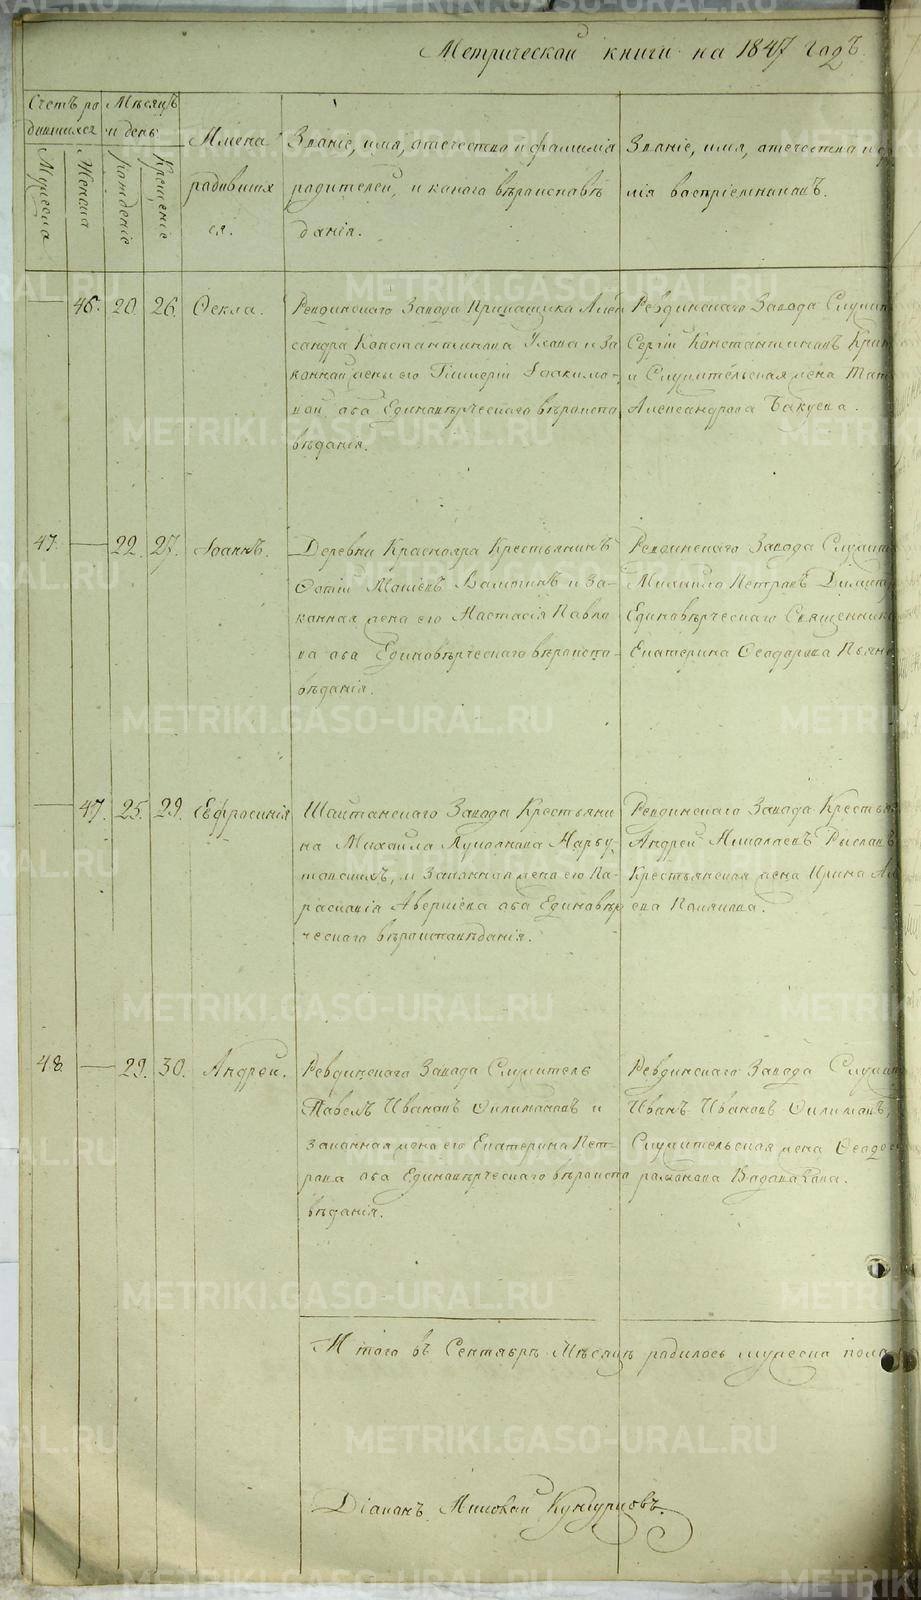 Метрической книги на 1847 годъ.
Счетъ ро
дившихся
Мѣсяцъ
и день
Мужеска
Женска
рожденіе
крещеніе
Имена
родивших
ся.
Званіе, имя, отечество и фамилія
родителей, и какого вѣроисповѣ
данія.
Званіе, имя, отечество и
лія воспріемниковъ.
46. 20. 26. Ѳекла.
Ревдинскаго Завода Прикащика Алек
сандра Константинова и за
конной жены его Гликеріи Іоакимо-
вой оба Единовѣрческаго вѣроиспо
вѣданія.
Ревдинскаго Завода Служит
Сергій Константиновъ
и Служительская жена Тат
Александрова
47. 22. 27. Іоаннъ.
Деревни Краснояра Крестьянинъ
Фотій и за-
конная жена его Настасія Павло
ва оба Единовѣрческаго вѣроиспо-
вѣданія.
Ревдинскаго Завода Служит
Михаило Петровъ
Единовѣрческаго Священника
Екатерина Ѳеодорова
47. 25. 29. Евфросинія
Шайтанскаго Завода Крестьяни
на Михаила
и Законная жена его Па
раскавія оба Единовѣр
ческаго вѣроисповѣданія.
Ревдинскаго Завода Крестьян
Андрей Николаевъ
Крестьянская жена Ирина
ева
48. 29. 30. Андрей.
Ревдинскаго Завода Служитель
Павелъ Ивановъ Филимоновъ и
законная жена его Екатерина Пет-
рова оба Единовѣрческаго вѣроиспо
вѣданія.
Ревдинскаго Завода Служит
Иванъ Ивановъ Филимоновъ,
Служительская жена
Итого въ Сентябрѣ Мѣсяцѣ родилось мужеска пола
Діаконъ Кунгурцовъ.
METRIKI.GASO-URAL.RU